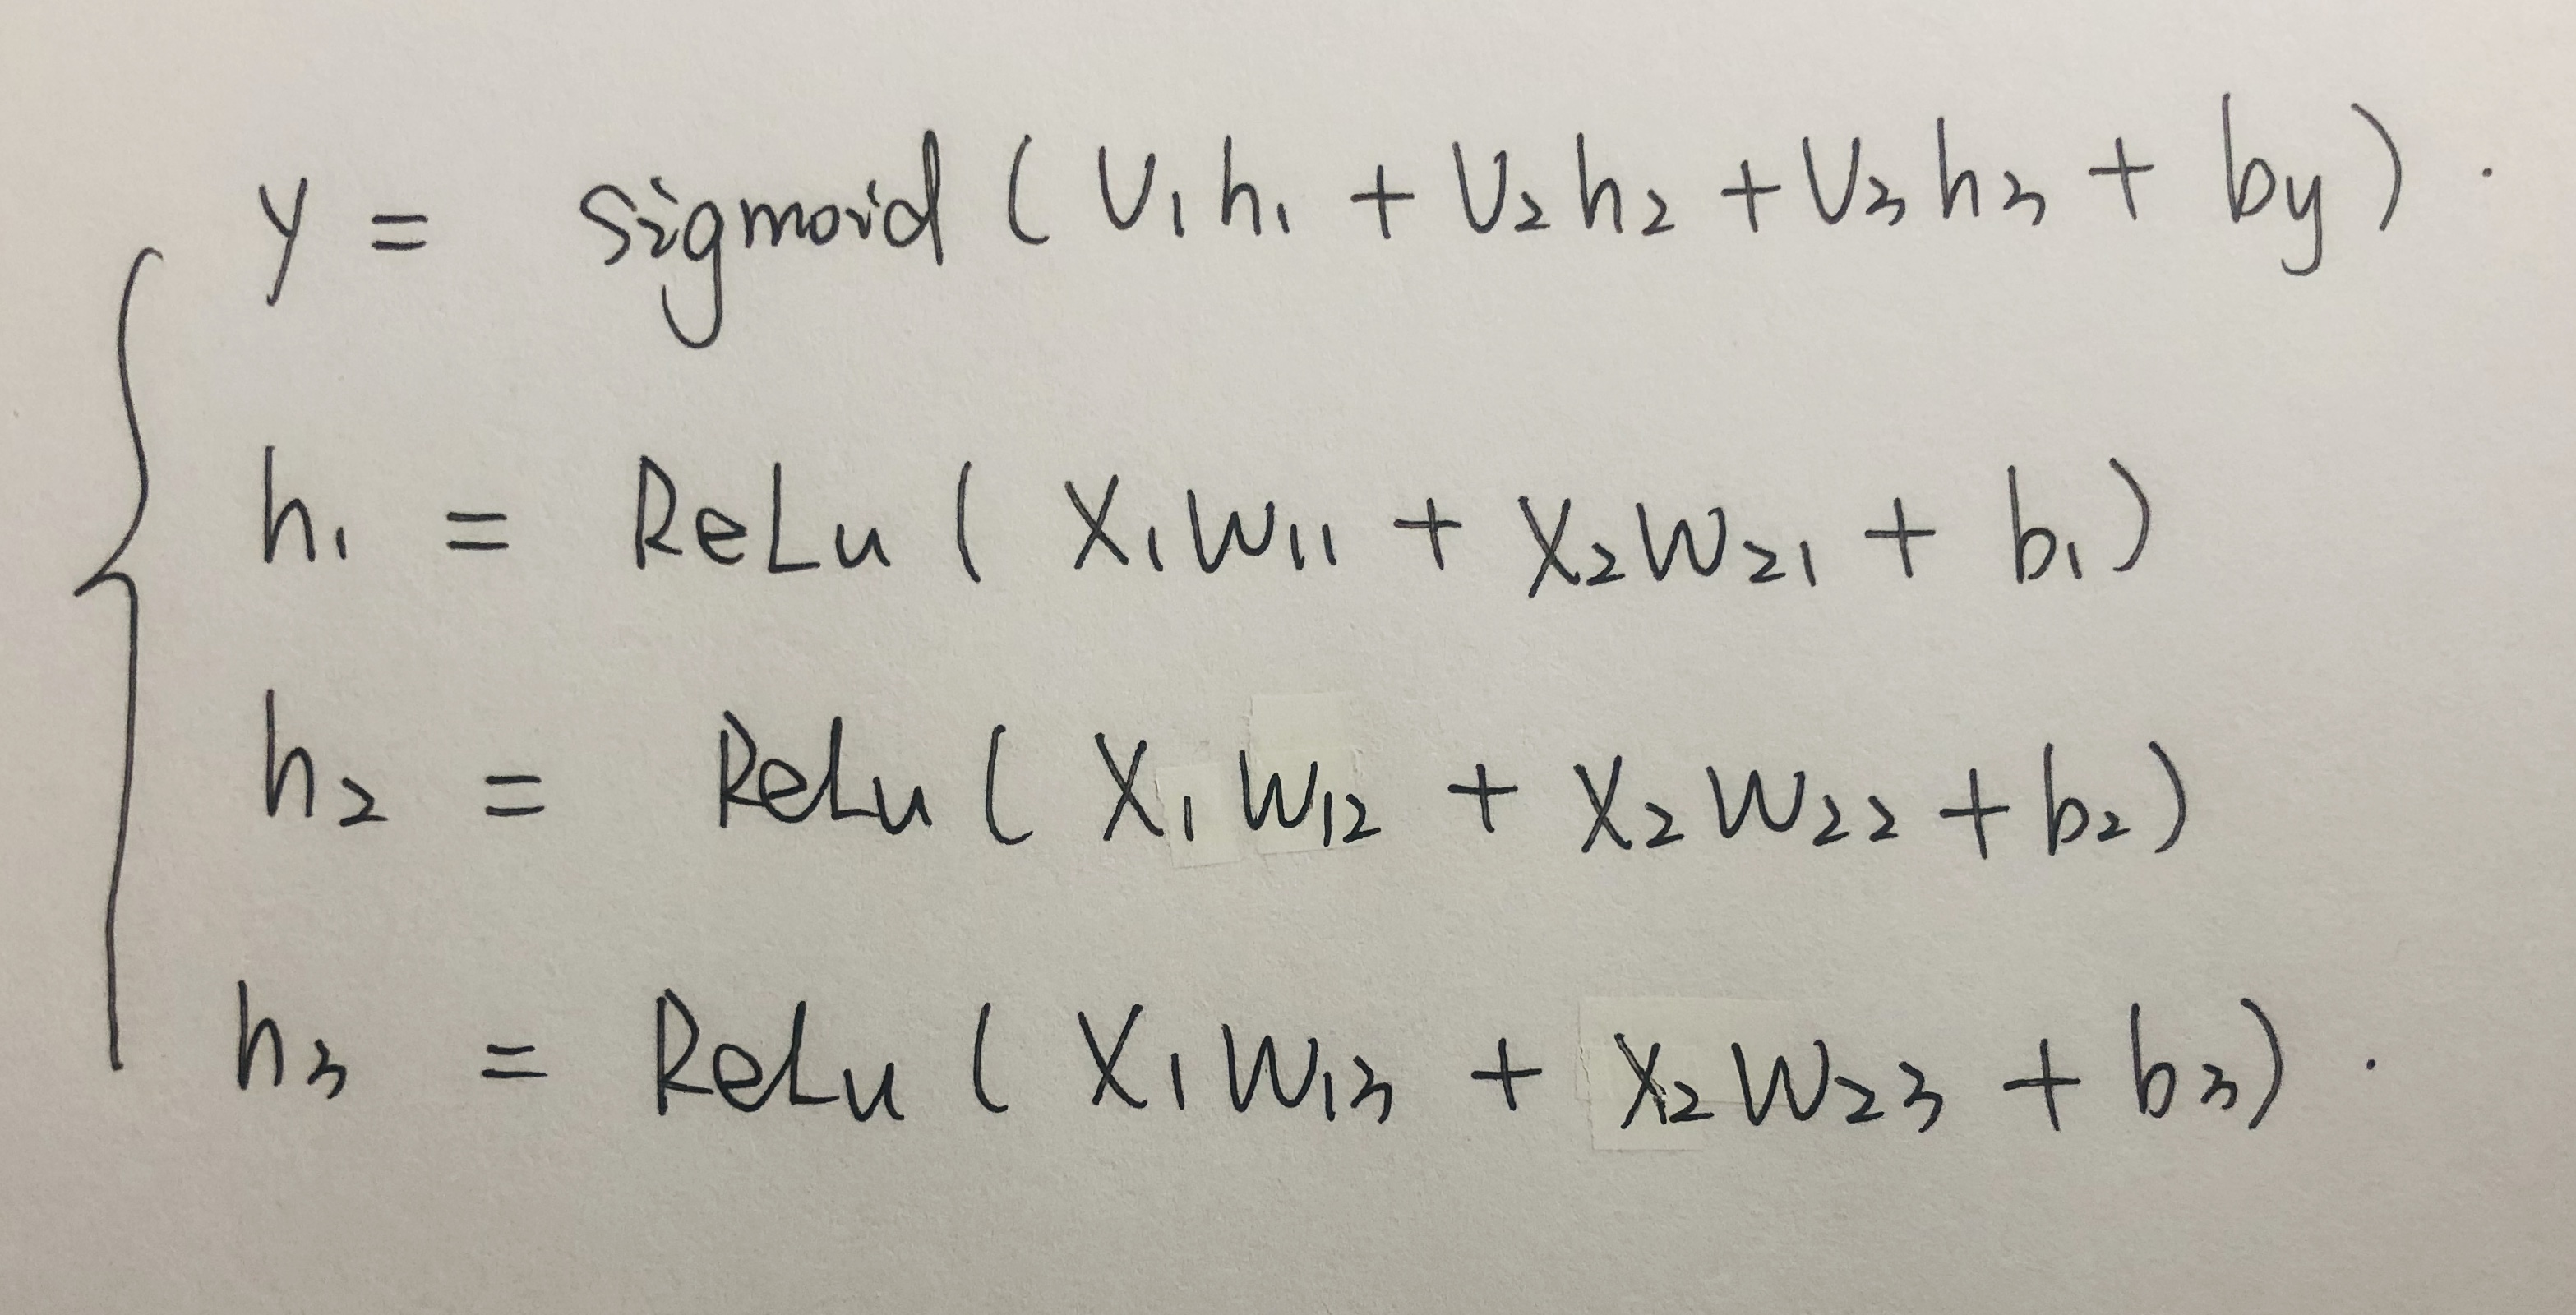 y = sigmoid ( U₁h₁ + U₂h₂ + U₃h₃ + by ) .
h₁ = ReLu ( X₁W₁₁ + X₂W₂₁ + b₁ )
h₂ = ReLu ( X₁W₁₂ + X₂W₂₂ + b₂ )
h₃ = ReLu ( X₁W₁₃ + X₂W₂₃ + b₃ ) .